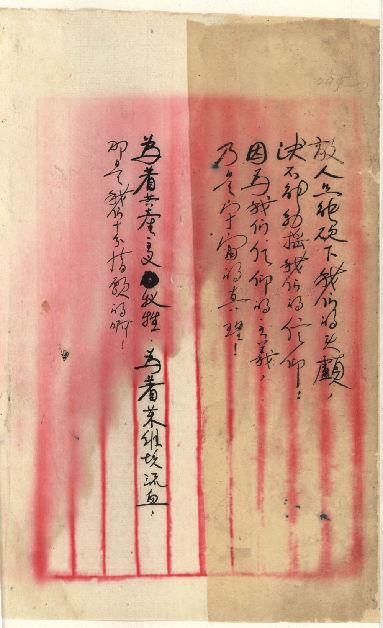 敌人只能砍下我们的头顱，
决不能动摇我们的信仰！
因為我们信仰的主義，
乃是宇宙的真理！
為着共產主牺牲，為着苏維埃流血，
那是我们十分情願的啊！